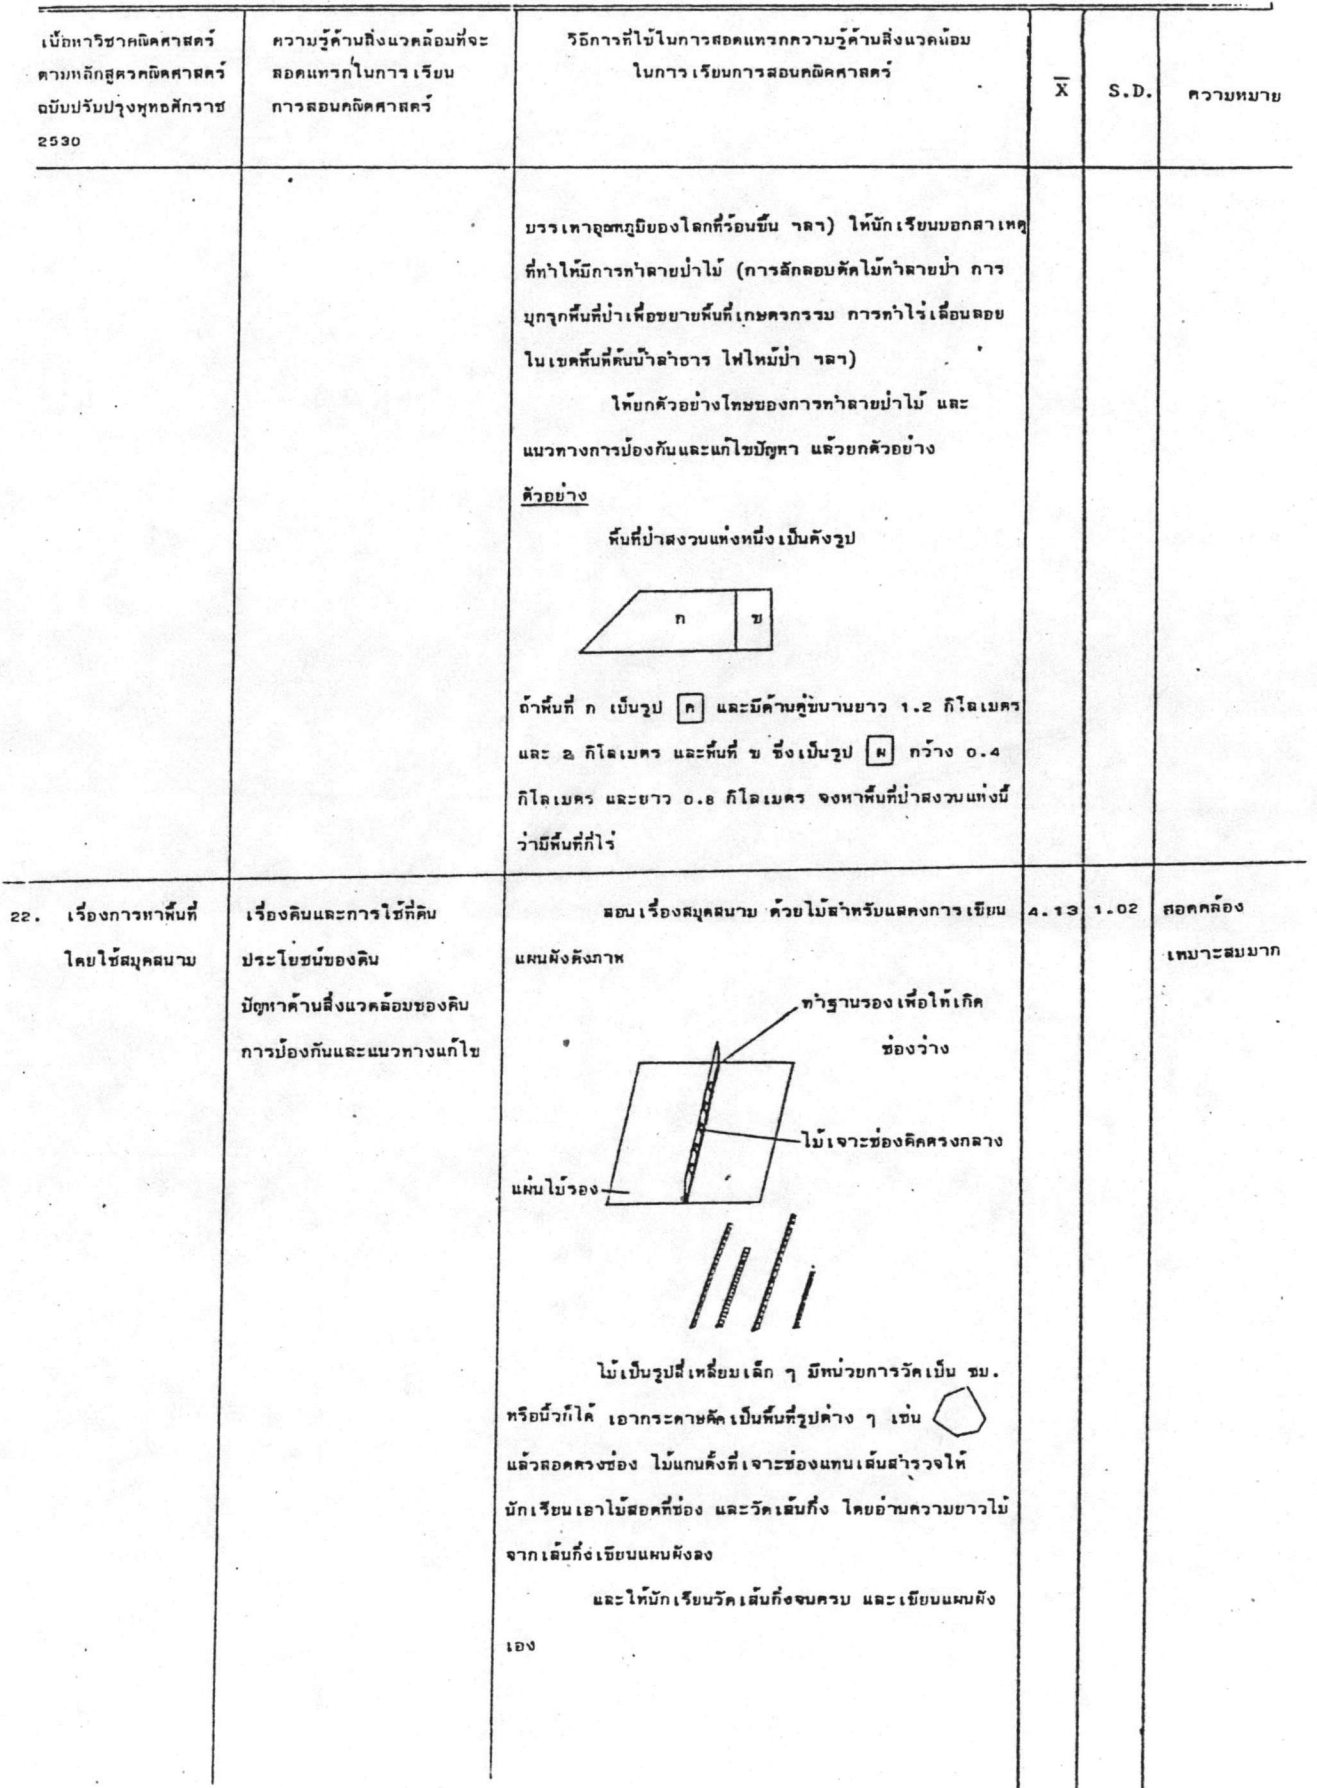 เนื้อหาวิชาคณิตศาสตร์
ตามหลักสูตรคณิตศาสตร์
ฉบับปรับปรุงพุทธศักราช
2530
ความรู้ด้านสิ่งแวดล้อมที่จะ
สอดแทรกในการเรียน
การสอนคณิตศาสตร์
วิธีการที่ใช้ในการสอดแทรกความรู้ด้านสิ่งแวดล้อม
ในการเรียนการสอนคณิตศาสตร์
X̄
S.D.
ความหมาย
บรรเทาอุณหภูมิของโลกที่ร้อนขึ้น ฯลฯ) ให้นักเรียนบอกสาเหตุ
ที่ทำให้มีการทำลายป่าไม้ (การลักลอบตัดไม้ทำลายป่า การ
บุกรุกพื้นที่ป่าเพื่อขยายพื้นที่เกษตรกรรม การทำไร่เลื่อนลอย
ในเขตพื้นที่ต้นน้ำลำธาร ไฟไหม้ป่า ฯลฯ)
ให้ยกตัวอย่างโทษของการทำลายป่าไม้ และ
แนวทางการป้องกันและแก้ไขปัญหา แล้วยกตัวอย่าง
ตัวอย่าง
พื้นที่ป่าสงวนแห่งหนึ่งเป็นดังรูป
ก ข
ถ้าพื้นที่ ก เป็นรูป ค และมีด้านคู่ขนานยาว 1.2 กิโลเมตร
และ 2 กิโลเมตร และพื้นที่ ข ซึ่งเป็นรูป ผ กว้าง 0.4
กิโลเมตร และยาว 0.8 กิโลเมตร จงหาพื้นที่ป่าสงวนแห่งนี้
ว่ามีพื้นที่กี่ไร่
22. เรื่องการหาพื้นที่
โดยใช้สมุดสนาม
เรื่องดินและการใช้ที่ดิน
ประโยชน์ของดิน
ปัญหาด้านสิ่งแวดล้อมของดิน
การป้องกันและแนวทางแก้ไข
สอนเรื่องสมุดสนาม ด้วยไม้สำหรับแสดงการเขียน
แผนผังดังภาพ
4.13
1.02
สอดคล้อง
เหมาะสมมาก
ทำฐานรองเพื่อให้เกิด
ช่องว่าง
ไม้เจาะช่องติดตรงกลาง
แผ่นไม้รอง
ไม้เป็นรูปสี่เหลี่ยมเล็ก ๆ มีหน่วยการวัดเป็น ซม.
หรือนิ้วก็ได้ เอากระดาษตัดเป็นพื้นที่รูปต่าง ๆ เช่น
แล้วสอดตรงช่อง ไม้แกนตั้งที่เจาะช่องแทนเส้นสำรวจให้
นักเรียนเอาไม้สอดที่ช่อง และวัดเส้นกิ่ง โดยอ่านความยาวไม้
จากเส้นกิ่งเขียนแผนผังลง
และให้นักเรียนวัดเส้นกิ่งจนครบ และเขียนแผนผัง
เอง